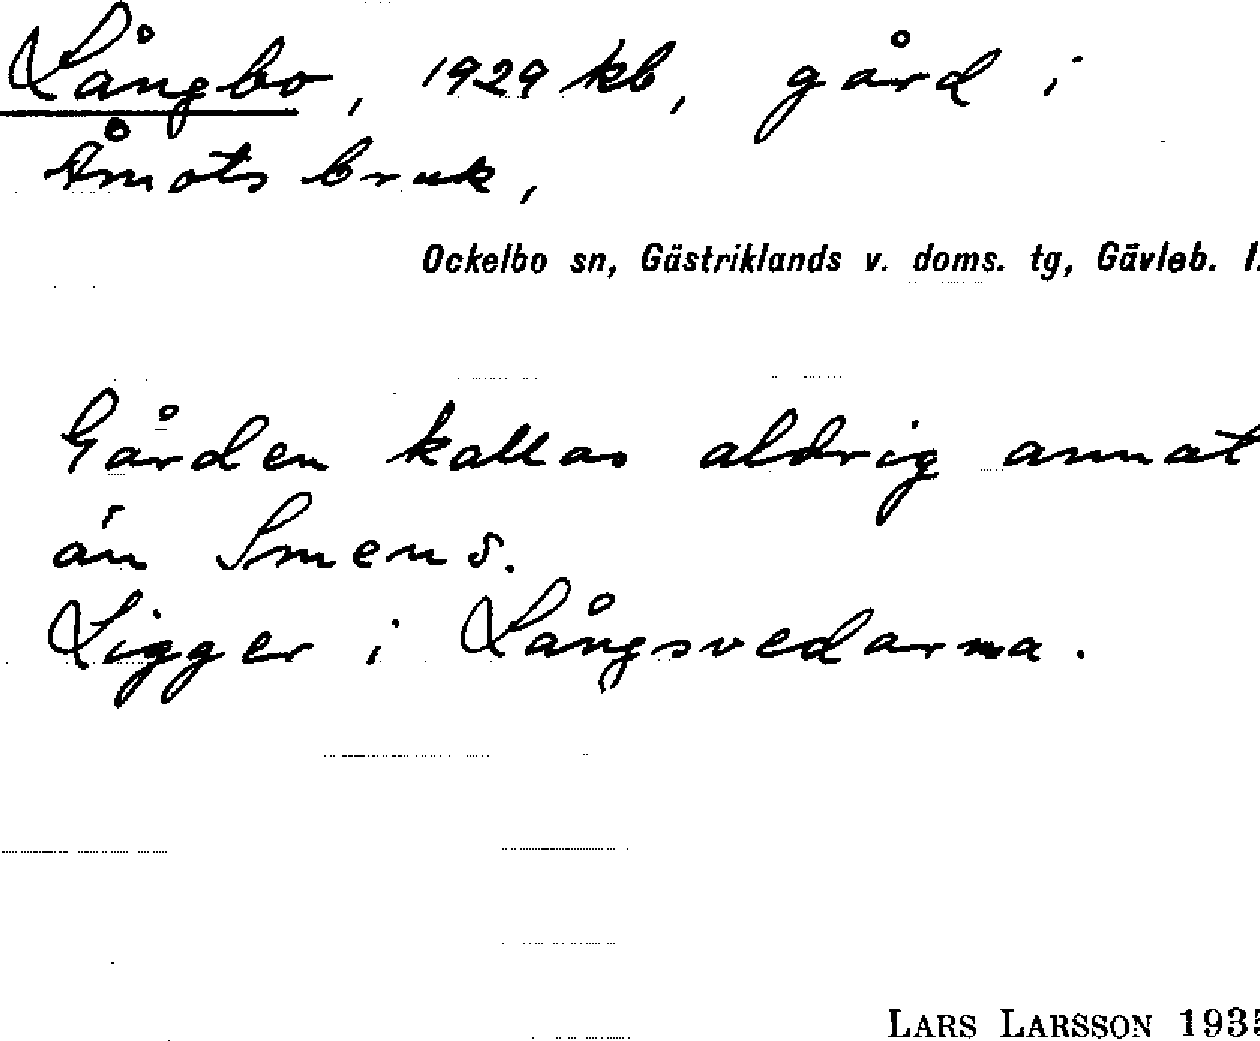 Långbo, 1929 kb, gård i
Åmots bruk,
Ockelbo sn, Gästriklands v. doms. tg, Gävleb. l.
Gården kallas aldrig annat
än Smens.
Ligger i Långsvedarna.
LARS LARSSON 1935